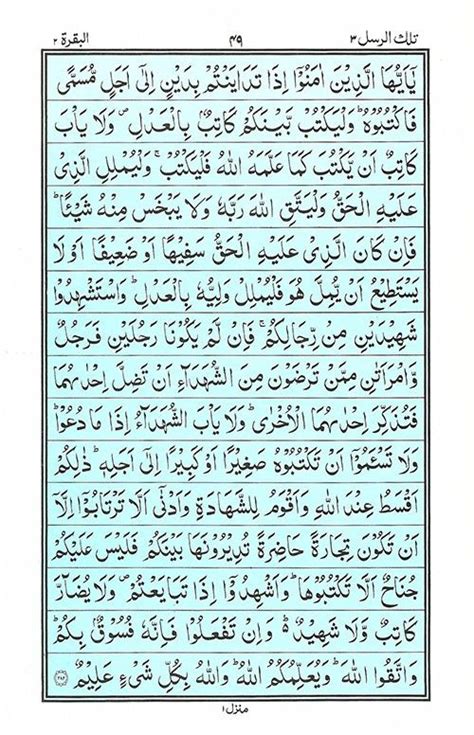 تلك الرسل ٣ ٤٩ البقرة ٢
يٰٓاَيُّهَا الَّذِيْنَ اٰمَنُوْٓا اِذَا تَدَايَنْتُمْ بِدَيْنٍ اِلٰٓى اَجَلٍ مُّسَمًّى
فَاكْتُبُوْهُ ؕ وَلْيَكْتُبْ بَّيْنَكُمْ كَاتِبٌۢ بِالْعَدْلِ ۪ وَلَا يَاْبَ
كَاتِبٌ اَنْ يَّكْتُبَ كَمَا عَلَّمَهُ اللّٰهُ فَلْيَكْتُبْ ۚ وَلْيُمْلِلِ الَّذِيْ
عَلَيْهِ الْحَقُّ وَلْيَتَّقِ اللّٰهَ رَبَّهٗ وَلَا يَبْخَسْ مِنْهُ شَيْـًٔا ؕ
فَاِنْ كَانَ الَّذِيْ عَلَيْهِ الْحَقُّ سَفِيْهًا اَوْ ضَعِيْفًا اَوْ لَا
يَسْتَطِيْعُ اَنْ يُّمِلَّ هُوَ فَلْيُمْلِلْ وَلِيُّهٗ بِالْعَدْلِ ؕ وَاسْتَشْهِدُوْا
شَهِيْدَيْنِ مِنْ رِّجَالِكُمْ ۚ فَاِنْ لَّمْ يَكُوْنَا رَجُلَيْنِ فَرَجُلٌ
وَّامْرَاَتٰنِ مِمَّنْ تَرْضَوْنَ مِنَ الشُّهَدَآءِ اَنْ تَضِلَّ اِحْدٰىهُمَا
فَتُذَكِّرَ اِحْدٰىهُمَا الْاُخْرٰى ؕ وَلَا يَاْبَ الشُّهَدَآءُ اِذَا مَا دُعُوْا ؕ
وَلَا تَسْـَٔمُوْٓا اَنْ تَكْتُبُوْهُ صَغِيْرًا اَوْ كَبِيْرًا اِلٰٓى اَجَلِهٖ ؕ ذٰلِكُمْ
اَقْسَطُ عِنْدَ اللّٰهِ وَاَقْوَمُ لِلشَّهَادَةِ وَاَدْنٰٓى اَلَّا تَرْتَابُوْٓا اِلَّآ
اَنْ تَكُوْنَ تِجَارَةً حَاضِرَةً تُدِيْرُوْنَهَا بَيْنَكُمْ فَلَيْسَ عَلَيْكُمْ
جُنَاحٌ اَلَّا تَكْتُبُوْهَا ؕ وَاَشْهِدُوْٓا اِذَا تَبَايَعْتُمْ ۪ وَلَا يُضَآرَّ
كَاتِبٌ وَّلَا شَهِيْدٌ ؕ وَاِنْ تَفْعَلُوْا فَاِنَّهٗ فُسُوْقٌۢ بِكُمْ ؕ
وَاتَّقُوا اللّٰهَ ؕ وَيُعَلِّمُكُمُ اللّٰهُ ؕ وَاللّٰهُ بِكُلِّ شَيْءٍ عَلِيْمٌ ٢٨٢
منزل ١